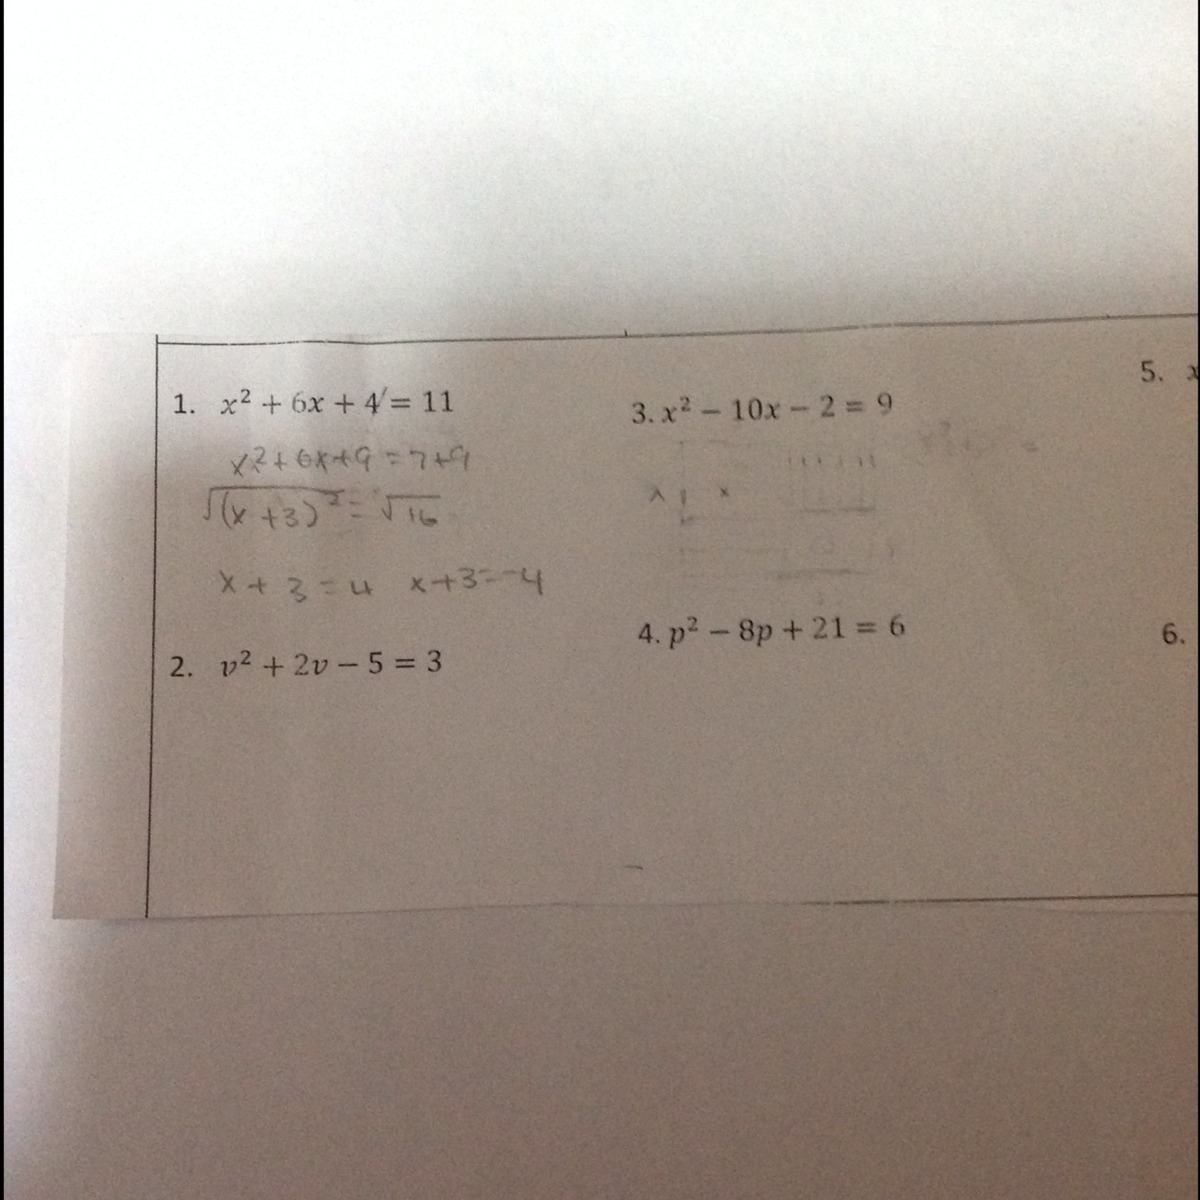 1. x² + 6x + 4 = 11
x² + 6x + 9 = 7 + 9
√(x + 3)² = √16
x + 3 = 4 x + 3 = -4
2. v² + 2v – 5 = 3
3. x² – 10x – 2 = 9
x
4. p² – 8p + 21 = 6
5. x
6.